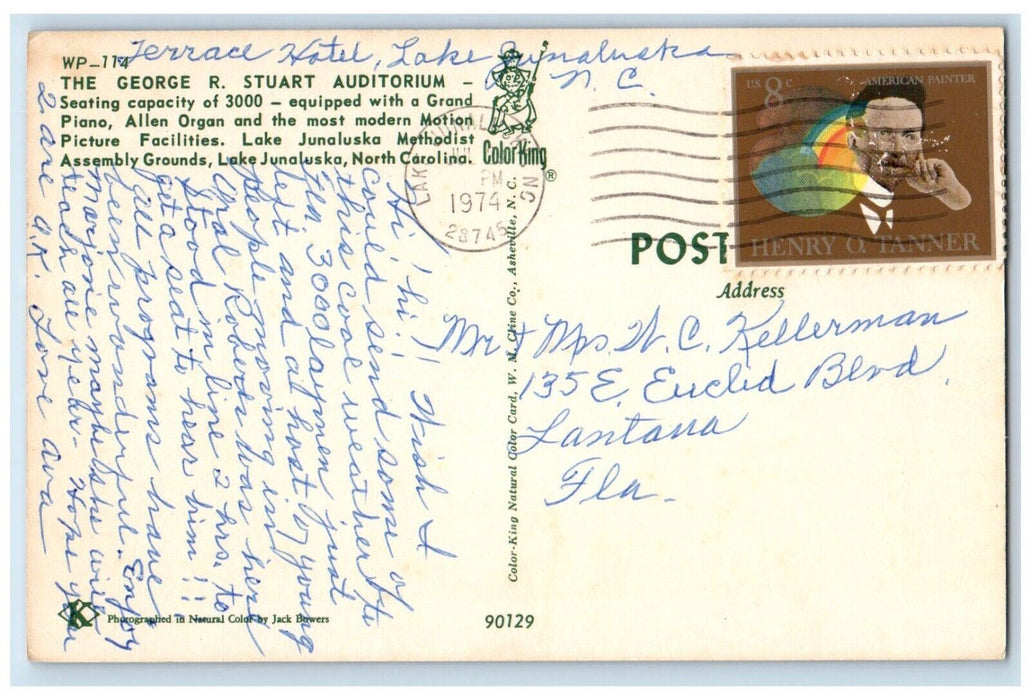 Terrace Hotel, Lake Junaluska
N. C.
WP-114
THE GEORGE R. STUART AUDITORIUM –
Seating capacity of 3000 – equipped with a Grand
Piano, Allen Organ and the most modern Motion
Picture Facilities. Lake Junaluska Methodist
Assembly Grounds, Lake Junaluska, North Carolina.
ColorKing
®
Hi! hi!! Wish I
could send some of
this cool weather to
Fla. 3000 laymen just
left and a host of young
people moving in
Oral Roberts was here
Stood in line 2 hrs. to
get a seat to hear him!!
All programs have
been wonderful. Enjoy
Marjorie maybe she will
all year- Hope you
2 are O.K. Love Ava
K
Photographed in Natural Color by Jack Bowers
90129
Color-King Natural Color Card, W. M. Cline Co., Asheville, N. C.
LAKE JUNALUSKA NC
JUL
PM
1974
28745
US 8c
AMERICAN PAINTER
HENRY O. TANNER
POST
Address
Mr + Mrs. W. C. Kellerman
135 E. Euclid Blvd.
Lantana
Fla.